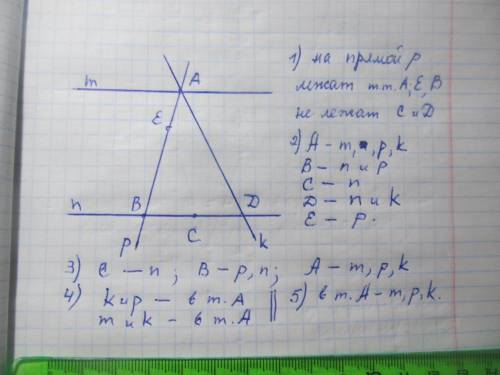 m
A
E
n
B
D
p
C
k
1) на прямой p
лежат тт. A, E, B
не лежат C и D
2) A - m, p, k
B - n и p
C - n
D - n и k
E - p.
3) C - n ; B - p, n ; A - m, p, k
4) k и p - в т. A
m и k - в т. A
5) в т. A - m, p, k.
4 5 6 7 8 9 10 11